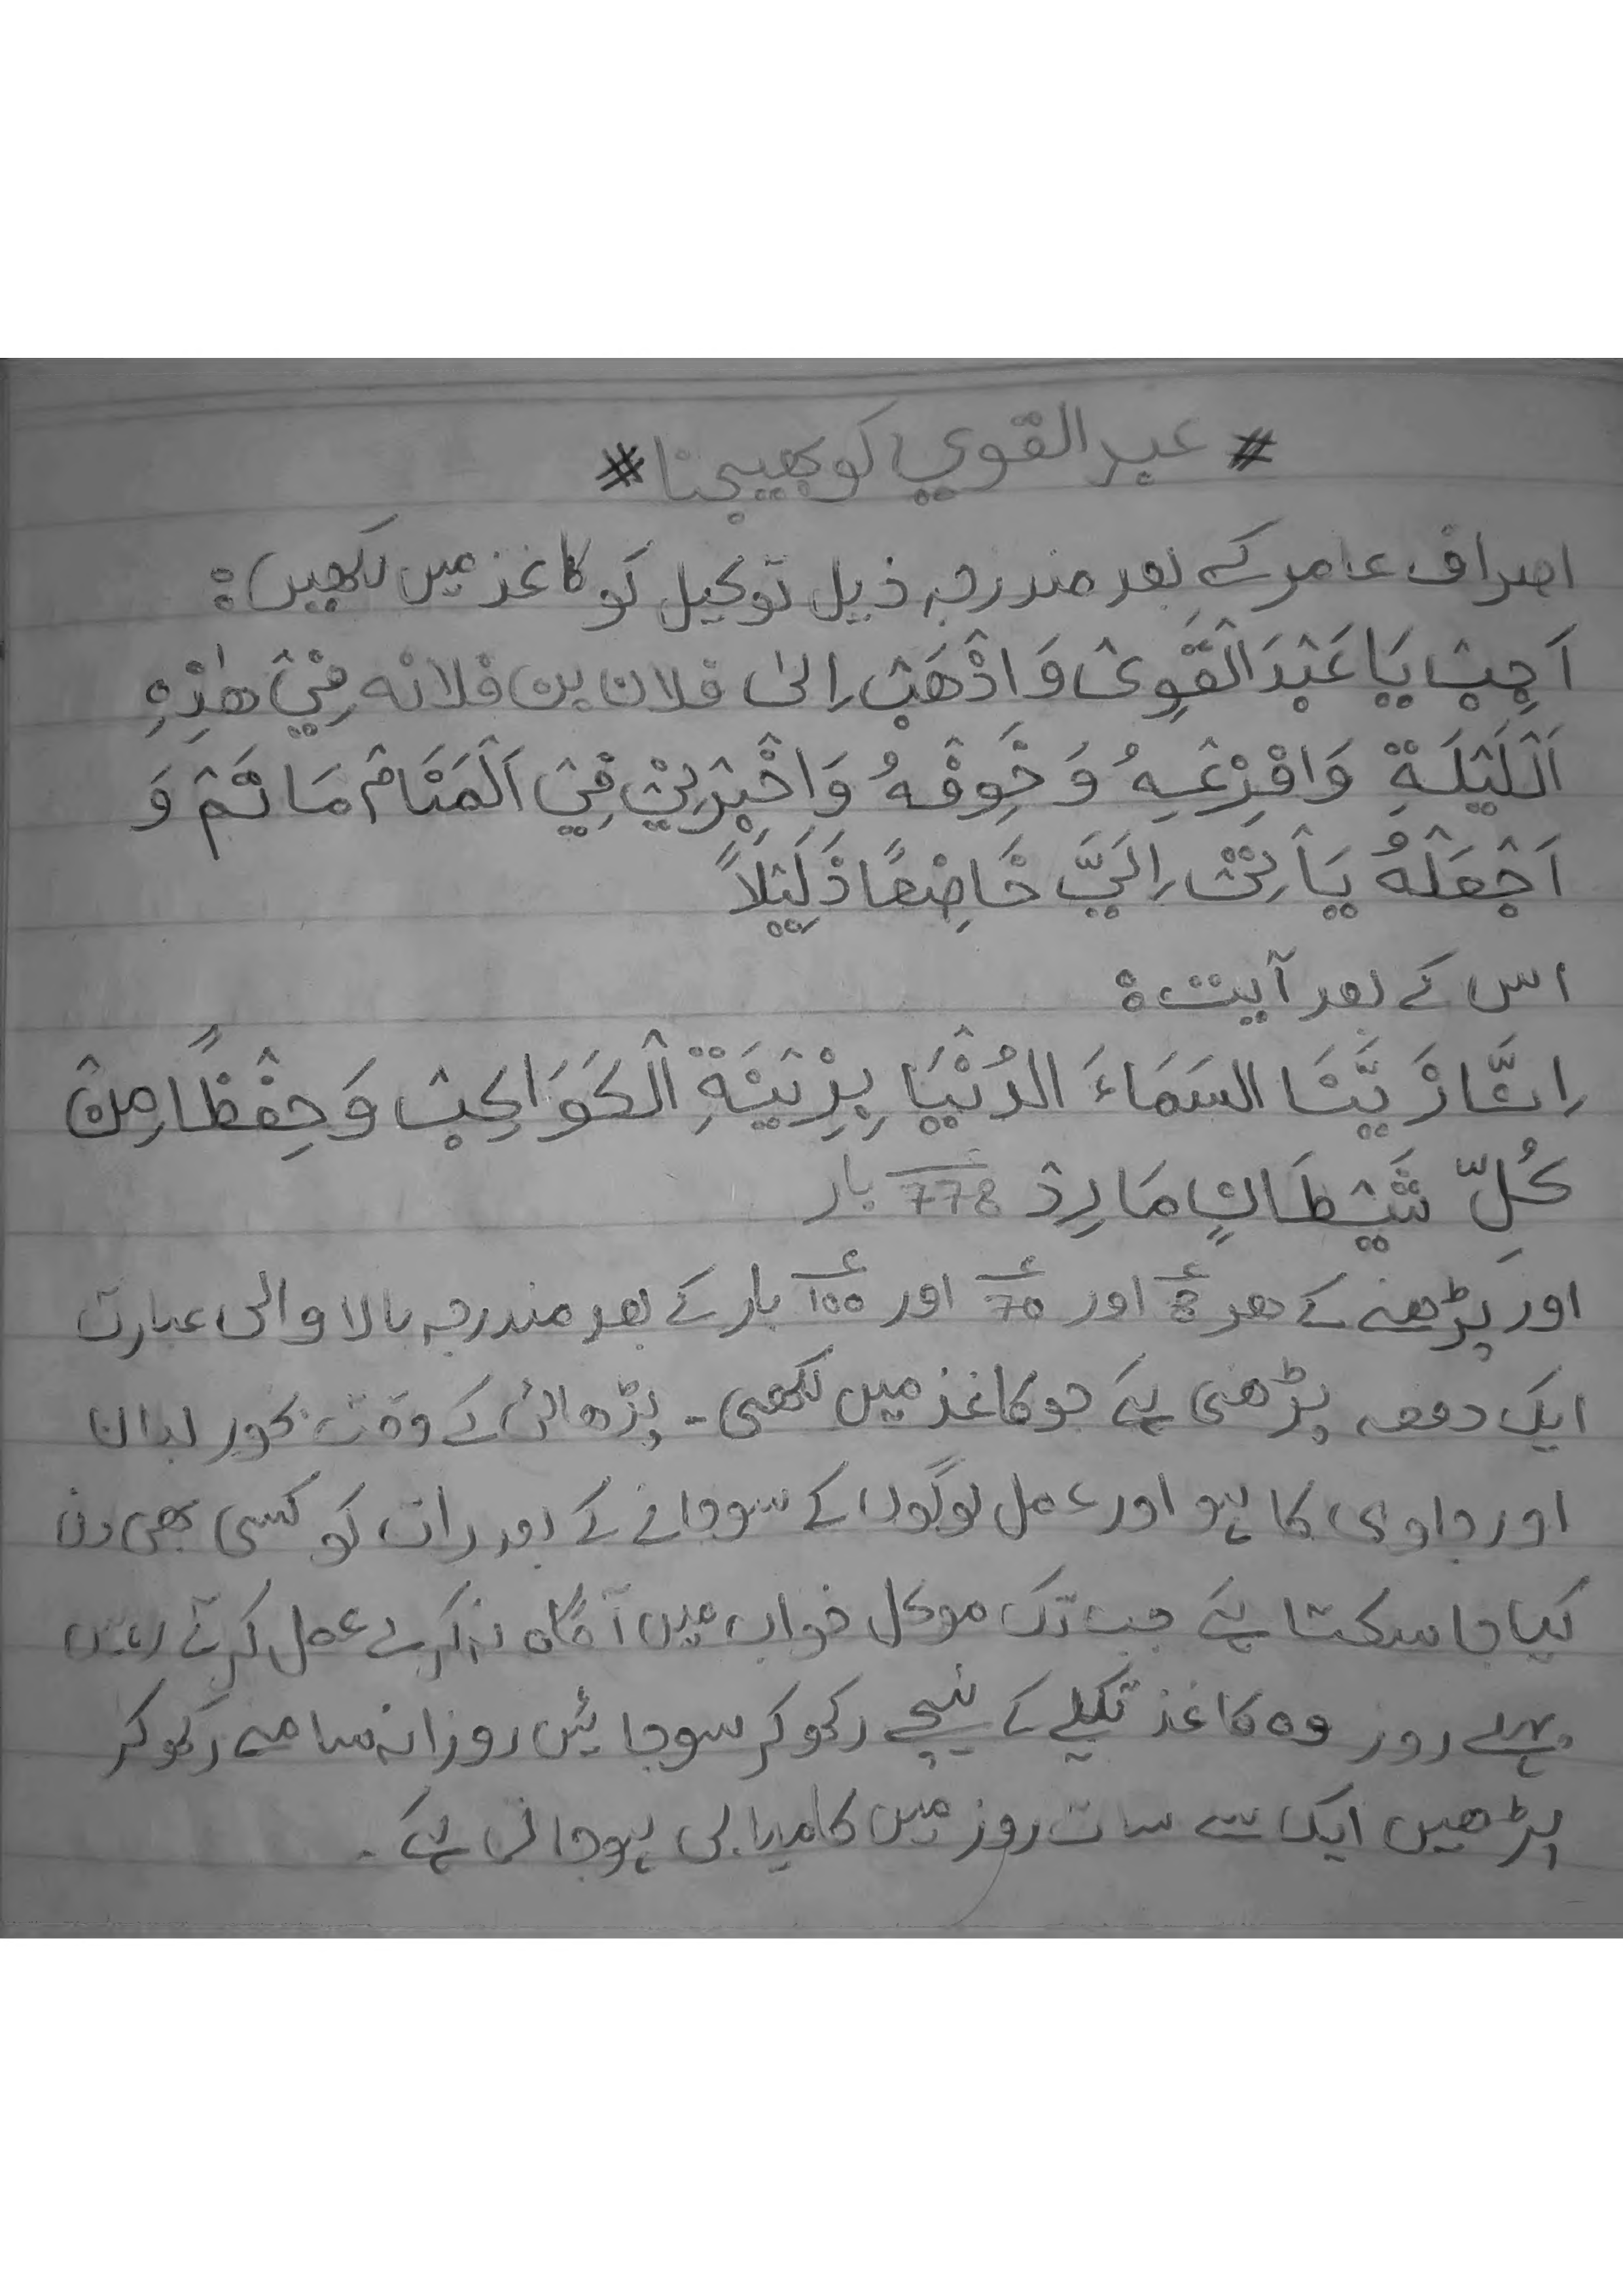 # عبد القوي کو بھیجنا #
اصراف عامر کے بعد مندرجہ ذیل توکیل کو کاغذ میں لکھیں:
اَجِبْ یَا عَبْدَ الْقَوِیْ وَ اذْهَبْ اِلیٰ فلان بن فلانه فِیْ هٰذِهِ
اَلْلَیْلَةِ وَافْزِعْهُ وَ خَوِفْهُ وَاخْبِرْنِیْ فِیْ اَلْمَنَامْ مَا تَمْ وَ
اَجْعَلْهُ یَأتِیْ اِلَیَّ خَاضِعًا ذَلَیْلَاً
اس کے بعد آیت:
اِنَّا زَیَّنَا السَمَاءَ الدُنْیَا بِزِیْنَةِ الْکَوَاکِبْ وَ حِفْظًا مِنْ
کُلِّ شَیْطَانٍ مَارِدْ 778 بار
اور پڑھنے کے ھر 8 اور 70 اور 100 بار کے بعد مندرجہ بالا والی عبارت
ایک دفعہ پڑھنی ہے جو کاغذ میں لکھی - پڑھائی کے وقت بخور لبان
اور جاوی کا ہو اور عمل لوگوں کے سوجانے کے بعد رات کو کسی بھی دن
کیا جا سکتا ہے جب تک موکل خواب میں آگاہ نہ کرے عمل کرتے رہیں
پہلے روز وہ کاغذ تکیے کے نیچے رکھ کر سوجائیں روزانہ سامنے رکھ کر
پڑھیں ایک سے سات روز میں کامیابی ہو جاتی ہے۔